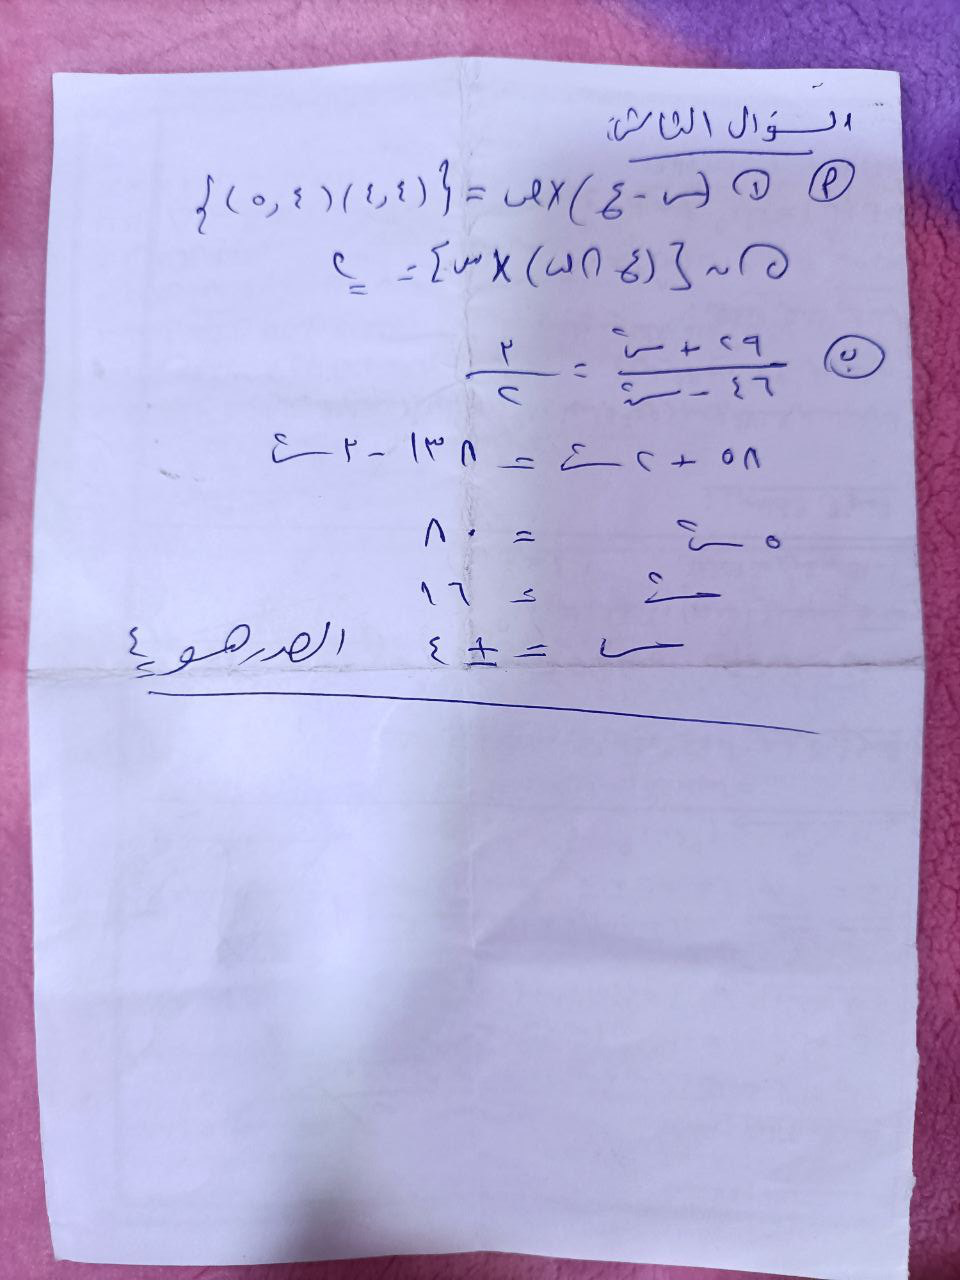 السؤال الثالث:
أ ١ (س - ع) × ص = {(٤,٤) (٤,٥)}
٢ ن [(ع ∩ ص) × س] = ٢
ب ٢٩ + س٢ / ٤٦ - س٢ = ٣ / ٢
٥٨ + ٢ س٢ = ١٣٨ - ٣ س٢
٥ س٢ = ٨٠
س٢ = ١٦
س = ± ٤ العدد هو ٤